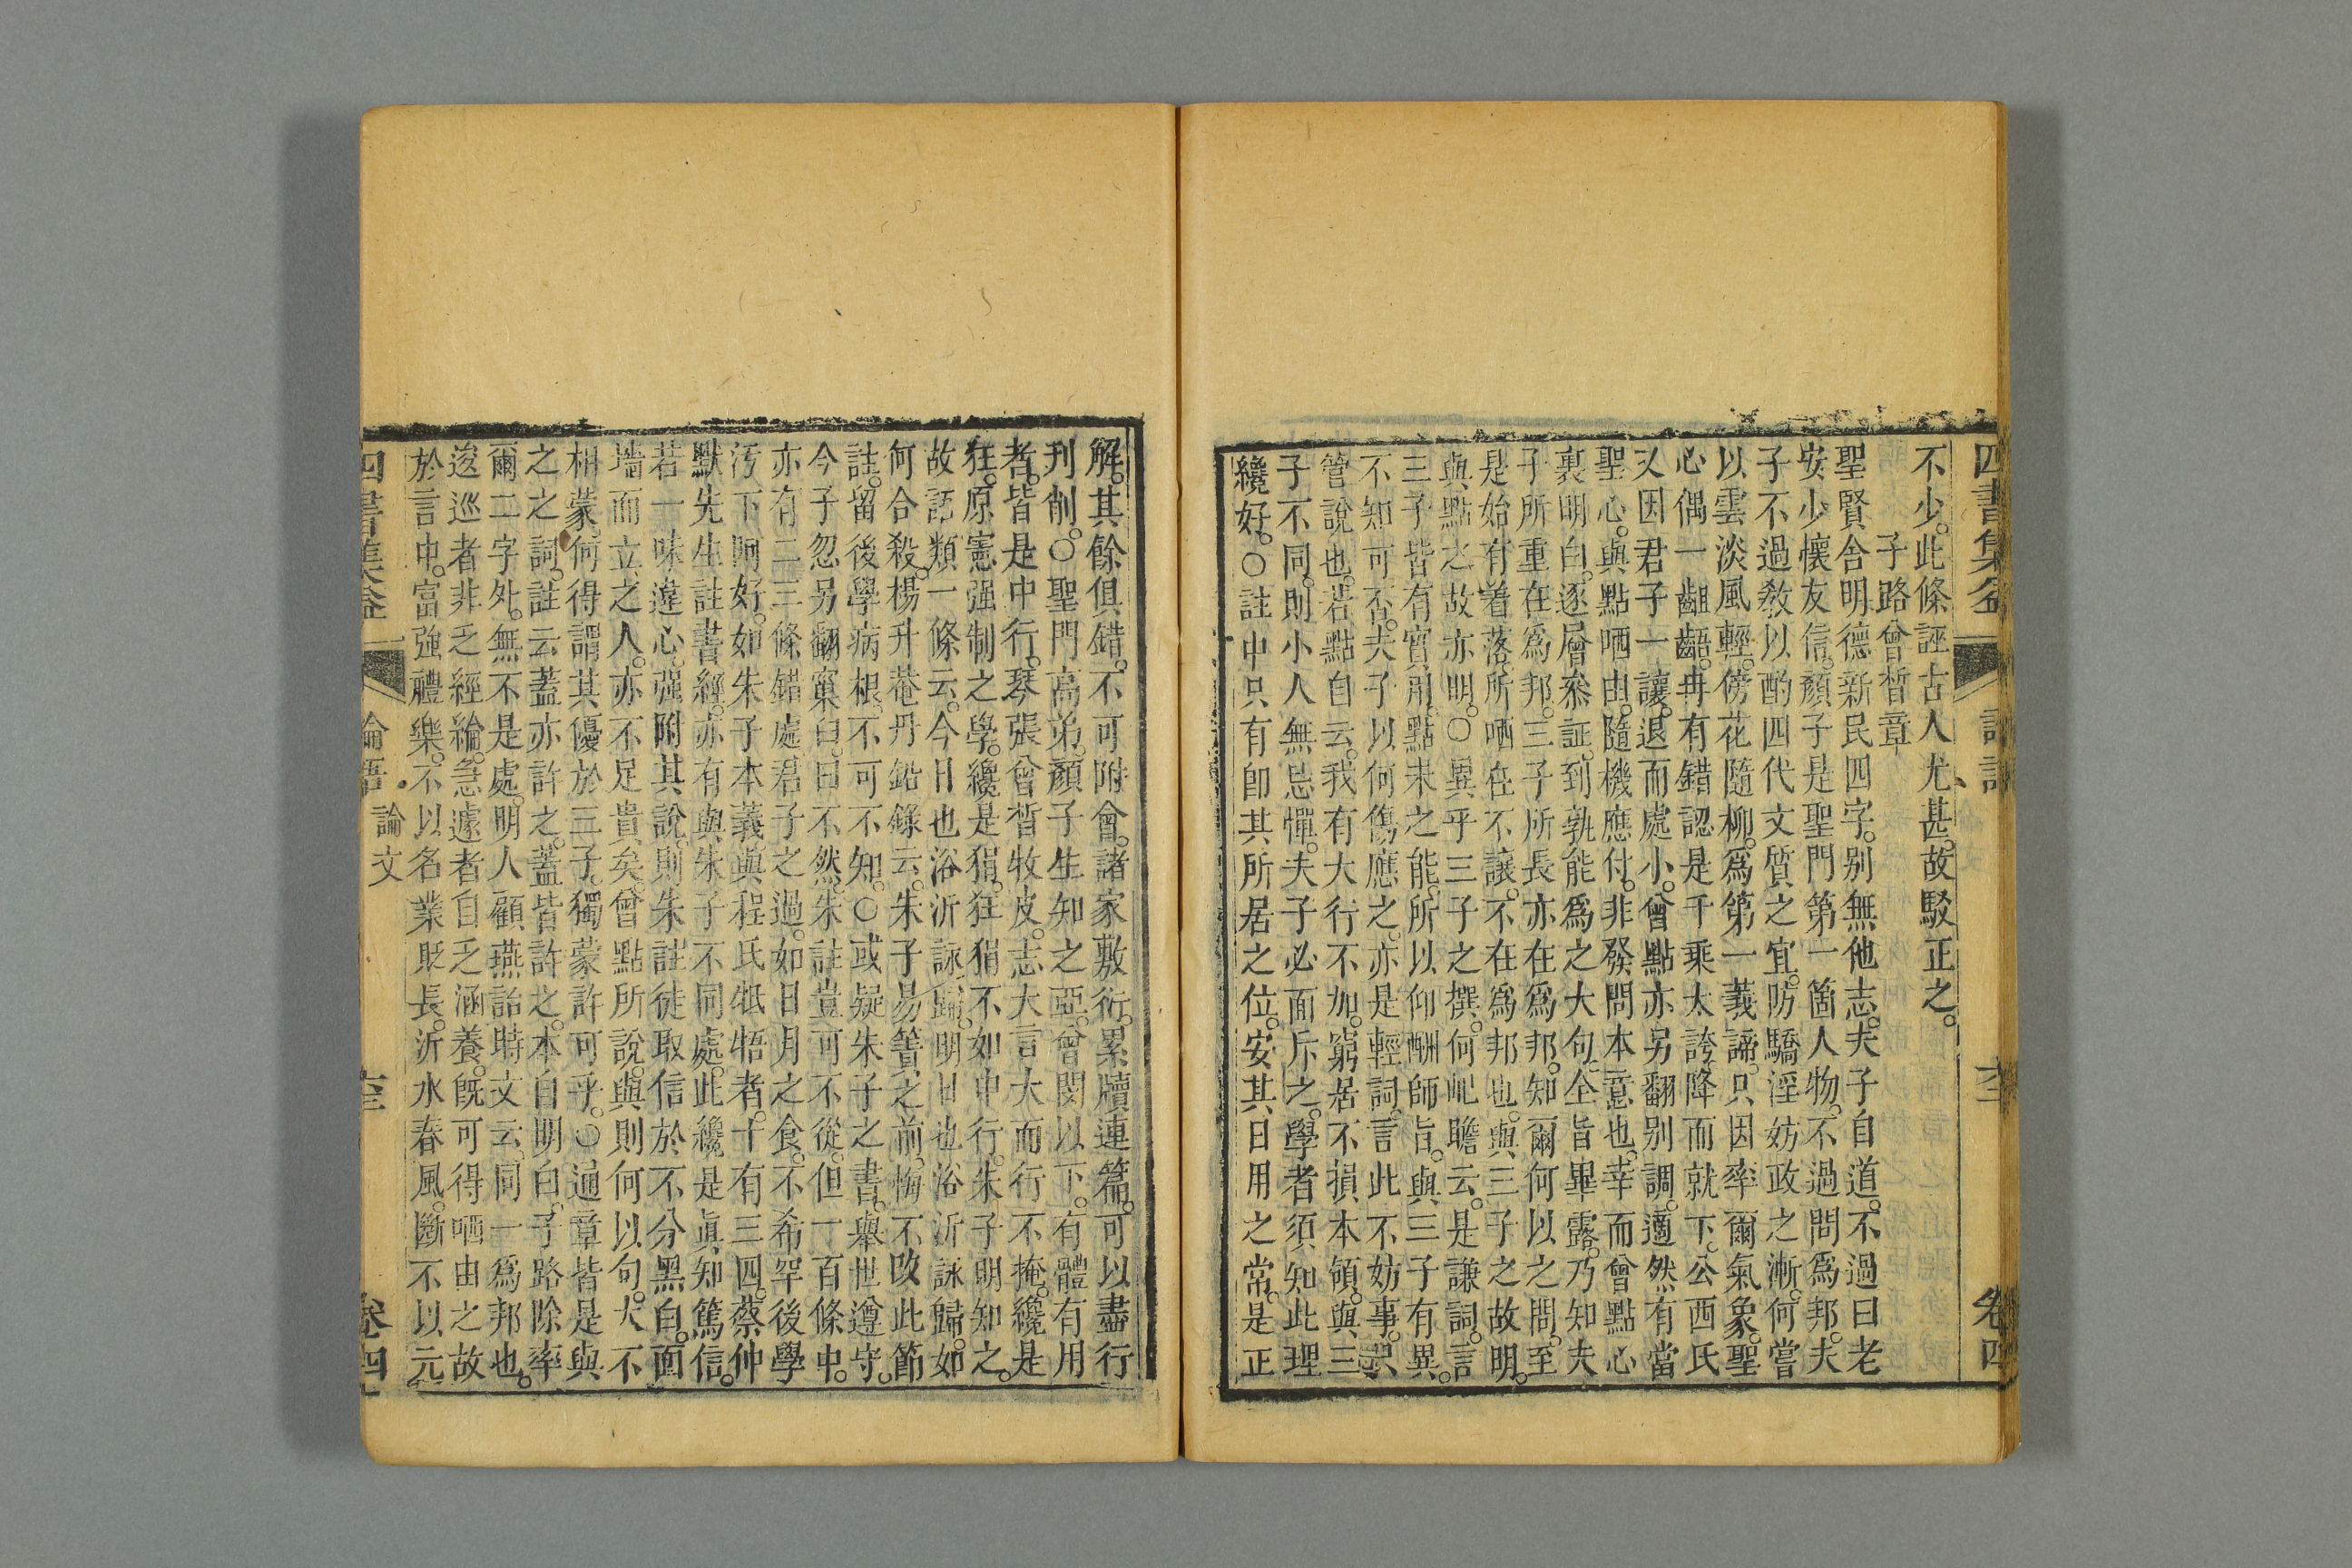 四書集益
卷四
不少。此條誣古人尤甚。故駁正之。
子路曾晳章
聖賢合明德新民四字。別無他志。夫子自道。不過曰老
安少懷友信。顏子是聖門第一箇人物。不過問為邦。夫
子不過教以酌四代文質之宜。防驕淫妨政之漸。何嘗
以雲淡風輕。傍花隨柳。為第一義諦。只因率爾氣象。聖
心偶一齟齬。冉有錯認是千乘太誇。降而就下。公西氏
又因君子一讓。退而處小。曾點亦另翻別調。適然有當
聖心。與點哂由。隨機應付。非發問本意也。幸而曾點心
裏明白。逐層叅証。到孰能為之大句。全旨畢露。乃知夫
子所重在為邦。三子所長亦在為邦。知爾何以之問。至
是始有着落。所哂在不讓。不在為邦也。與三子之故明。
與點之故亦明。○異乎三子之撰。何屺瞻云。是謙詞。言
三子皆有實用。點未之能。所以仰酬師旨。與三子有異。
不知可否。夫子以何傷應之。亦是輕詞。言此不妨事。只
管說也。若點自云。我有大行不加。窮居不損本領。與三
子不同。則小人無忌憚。夫子必面斥之。學者須知此理
纔好。○註中只有卽其所居之位。安其日用之常。是正
解。其餘俱錯。不可附會。諸家敷衍。累牘連篇。可以盡行
刊削。○聖門高弟。顏子生知之亞。曾閔以下。有體有用
者。皆是中行。琴張曾晳牧皮。志大言大而行不掩。纔是
狂。原憲强制之學。纔是狷。狂狷不如中行。朱子明知之。
故語類一條云。今日也浴沂詠歸。明日也浴沂詠歸。如
何合殺。楊升菴丹鉛錄云。朱子易簀之前。悔不改此節
註。留後學病根。不可不知。○或疑朱子之書。舉世遵守。
今子忽另翻窠臼。曰不然。朱註豈可不從。但一百條中。
亦有二三條錯處。君子之過。如日月之食。不希罕後學
汚下阿好。如朱子本義。與程氏牴牾者。十有三四。蔡仲
默先生註書經。亦有與朱子不同處。此纔是眞知篤信。
若一味違心。强附其說。則朱註徒取信於不分黑白。面
墻而立之人。亦不足貴矣。曾點所說。與則何以句。大不
相蒙。何得謂其優於三子。獨蒙許可乎。○通章皆是與
之之詞。註云蓋亦許之。蓋皆許之。本自明白。子路除率
爾二字外。無不是處。明人顧燕詒時文云。同一為邦也。
逡巡者非乏經綸。急遽者自乏涵養。旣可得哂由之故
於言中。富强禮樂。不以名業貶長。沂水春風。斷不以元
四書集益
論語
論文
卷四